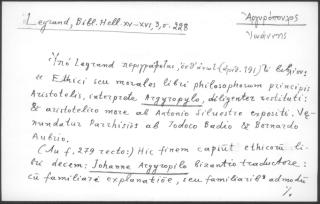 Legrand, Bibl. Hell. XV-XVI, 3, σ. 228
Ἀργυρόπουλος
Ἰωάννης
Ὑπὸ Legrand περιγράφεται, (ἀριθ. 191) τὸ βιβλίον:
« Ethici seu morales libri philosophorum principis
Aristotelis, interprete Argyropylo, diligenter restituti:
& aristotelico more ab Antonio Silvestro expositi. Ve-
nundatur Parrhisiis ab Iodoco Badio & Bernardo
Aubrio.
(Au f. 279 recto:) Hic finem capiũt ethicorũ li-
bri decem: Johanne Argyropilo bizantio traductore:
cũ familiarẽ explanatiõe, seu familiarib⁹ admodũ
%.